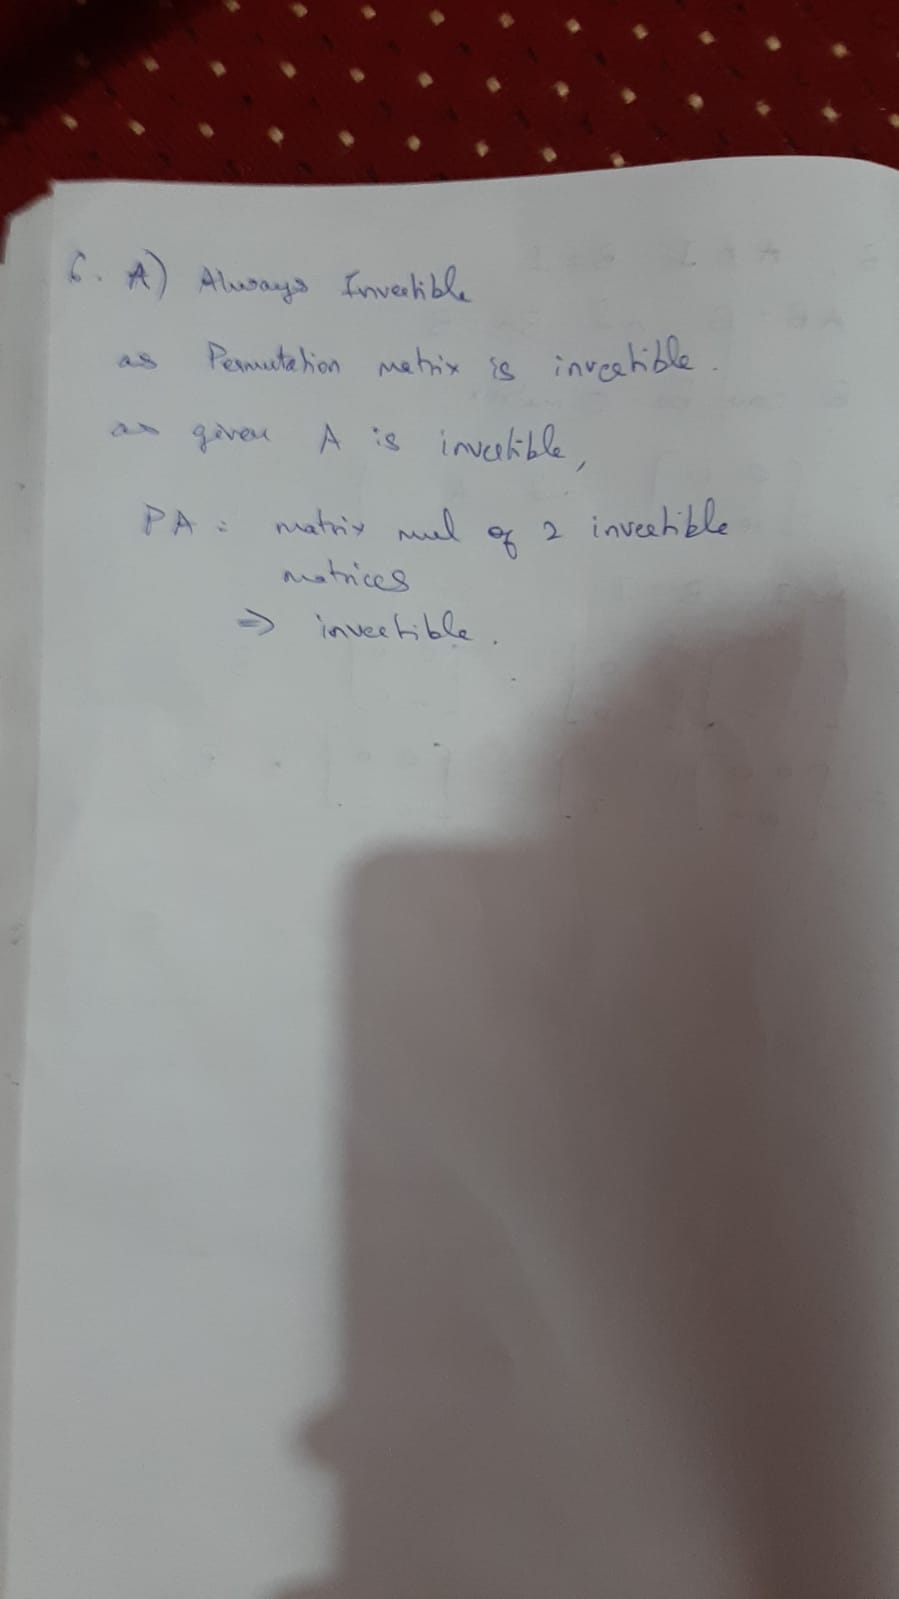 6. A) Always Invertible
as Permutation matrix is invertible.
as given A is invertible,
PA = matrix mul of 2 invertible
matrices
⇒ invertible.